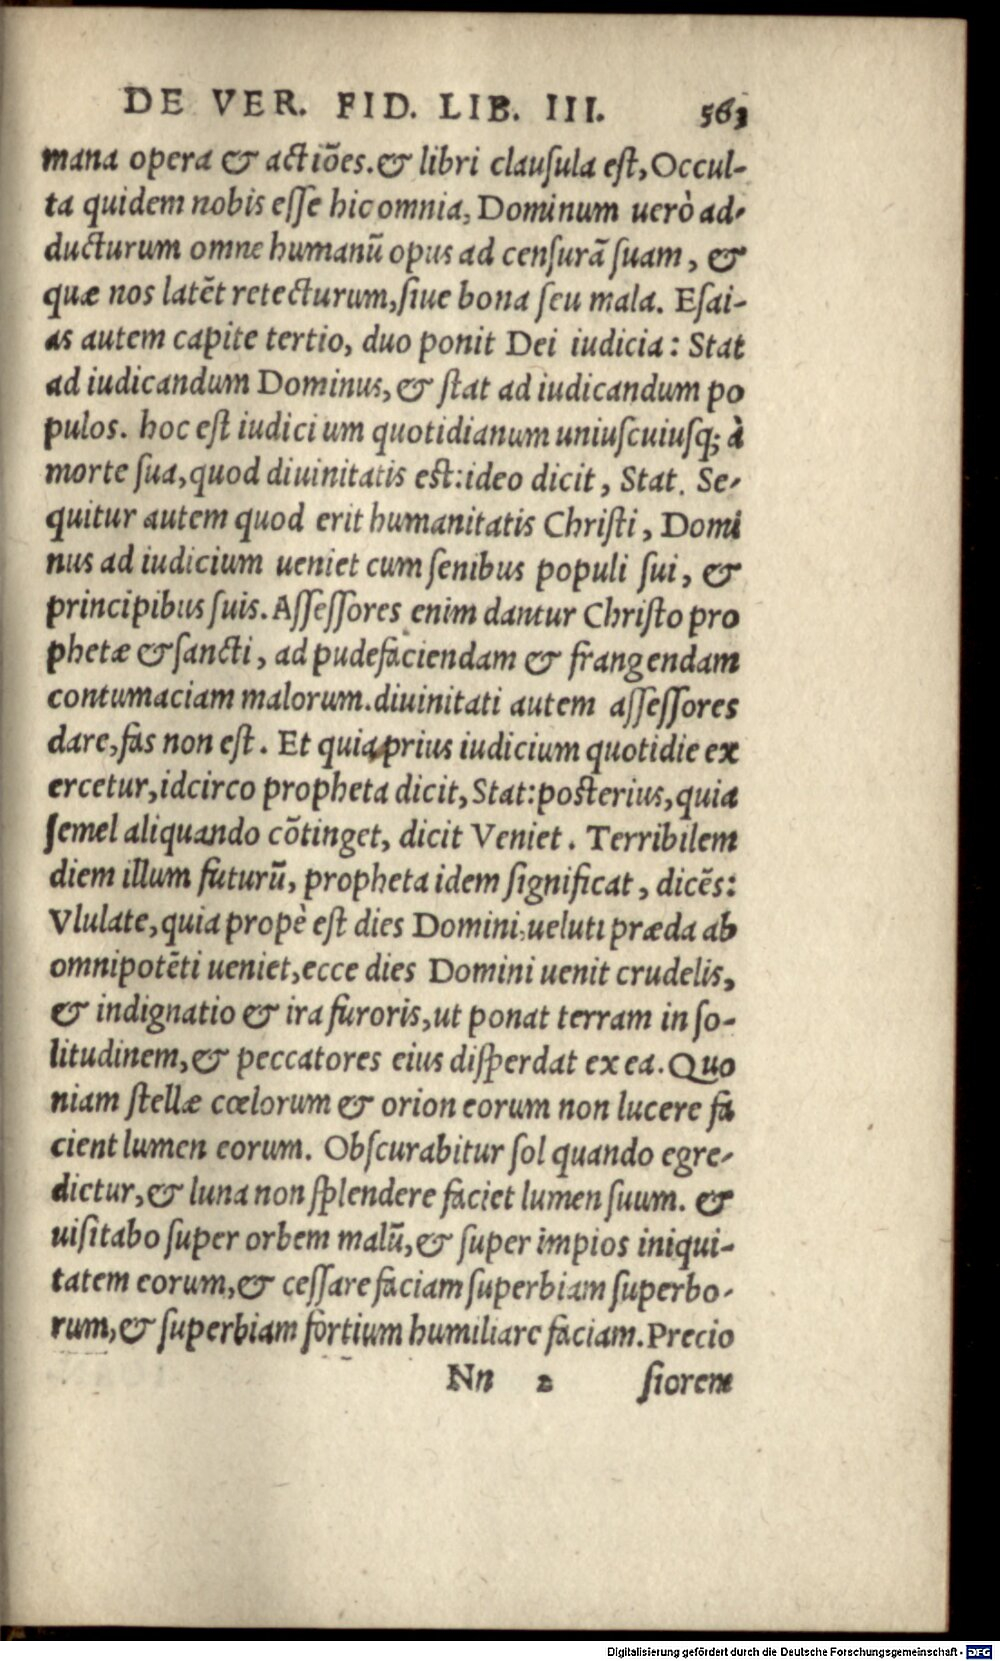 DE VER. FID. LIB. III. 563
mana opera & actiões. & libri clausula est, Occul-
ta quidem nobis esse hic omnia, Dominum uerò ad-
ducturum omne humanũ opus ad censurã suam, &
quæ nos latẽt retecturum, siue bona seu mala. Esai-
as autem capite tertio, duo ponit Dei iudicia: Stat
ad iudicandum Dominus, & stat ad iudicandum po
pulos. hoc est iudicium quotidianum uniuscuiusq; à
morte sua, quod diuinitatis est: ideo dicit, Stat. Se-
quitur autem quod erit humanitatis Christi, Domi
nus ad iudicium ueniet cum senibus populi sui, &
principibus suis. Assessores enim dantur Christo pro
phetæ & sancti, ad pudefaciendam & frangendam
contumaciam malorum. diuinitati autem assessores
dare, fas non est. Et quia prius iudicium quotidie ex
ercetur, idcirco propheta dicit, Stat: posterius, quia
semel aliquando cõtinget, dicit Veniet. Terribilem
diem illum futurũ, propheta idem significat, dicẽs:
Vlulate, quia propè est dies Domini, ueluti præda ab
omnipotẽti ueniet, ecce dies Domini uenit crudelis,
& indignatio & ira furoris, ut ponat terram in so-
litudinem, & peccatores eius disperdat ex ea. Quo
niam stellæ cœlorum & orion eorum non lucere fa
cient lumen eorum. Obscurabitur sol quando egre-
dictur, & luna non splendere faciet lumen suum. &
uisitabo super orbem malũ, & super impios iniqui-
tatem eorum, & cessare faciam superbiam superbo-
rum, & superbiam fortium humiliare faciam. Precio
Nn 2 siorem
Digitalisierung gefördert durch die Deutsche Forschungsgemeinschaft - DFG